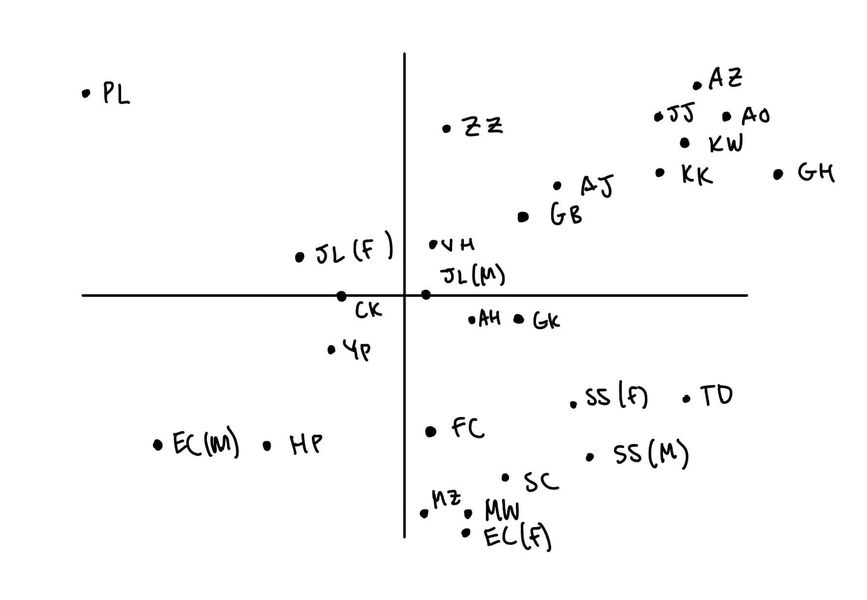 AZ
PL
JJ
AO
ZZ
KW
KK
GH
AJ
GB
JL (F)
VH
JL(M)
CK
AH
GK
YP
SS(F)
TD
FC
EC(M)
HP
SS(M)
SC
MZ
MW
EC(F)